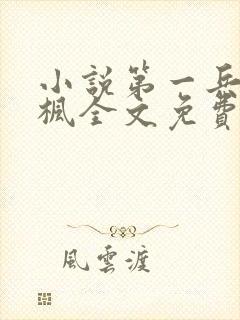 小說第一兵
楓全文免費
風雲渡